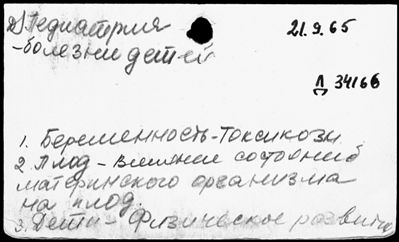 D) Педиатрия
21.9.65
-болезни детей
Д 34166
1. Беременность-Токсикозы
2. Плод - влияние состояний
материнского организма
на плод.
3. Дети - Физическое развитие